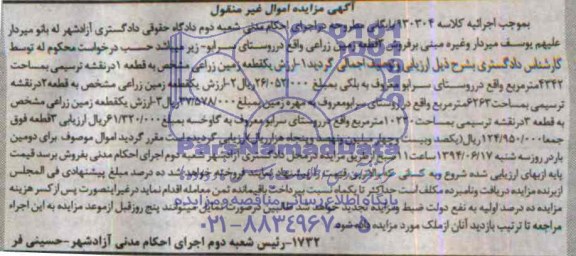 آگهی مزایده اموال غیر منقول
بموجب اجرائیه کلاسه ۹۳۰۳۰۴ بایگانی مطروحه در اجرای احکام مدنی شعبه دوم دادگاه حقوقی دادگستری آزادشهر له بانو میردار
علیهم یوسف میردار وغیره مبنی برفروش ۳قطعه زمین زراعی واقع درروستای سرابو- زیر میباشد حسب درخواست محکوم له توسط
کارشناس دادگستری بشرح ذیل ارزیابی وصف اجمالی گردید ۱-ارزش یکقطعه زمین زراعی مشخص به قطعه ۱درنقشه ترسیمی بمساحت
۴۳۴۲مترمربع واقع درروستای سرابو معروف به بلکی بمبلغ ۲۶/۰۵۲/۰۰۰ریال۲-ارزش یکقطعه زمین زراعی مشخص به قطعه ۲درنقشه
ترسیمی بمساحت۶۲۶۳مترمربع واقع درروستای سرابومعروف به مهره زمین بمبلغ۳۷/۵۷۸/۰۰۰ریال۳-ارزش یکقطعه زمین زراعی مشخص
به قطعه ۳درنقشه ترسیمی بمساحت۱۰۲۲۰مترمربع واقع درروستای سرابو معروف به گاوخسه بمبلغ ۶۱/۳۲۰/۰۰۰ریال ارزیابی ۳قطعه فوق
جمعا۱۲۴/۹۵۰/۰۰۰ریال(یکصد وبیست وچهار میلیون ونهصد وپنجاه هزارریال)ارزیابی گردیده است مقرر گردید اموال موصوف برای دومین
بار در روز سه شنبه ۱۳۹۴/۰۶/۱۷ساعت۱۱صبح ازطریق مزایده در محل دادگستری آزادشهر شعبه دوم اجرای احکام مدنی بفروش برسد قیمت
پایه ازبهای ارزیابی شده شروع وبه کسانی که بالاترین قیمت را پیشنهاد نمایند فروخته خواهد شد ده درصد مبلغ پیشنهادی فی المجلس
ازبرنده مزایده دریافت ونامبرده مکلف است حداکثر تا یکماه نسبت بپرداخت باقیمانده ثمن معامله اقدام نماید درغیراینصورت پس از کسر هزینه
مزایده ده درصد اولیه به نفع دولت ضبط ومزایده تجدید خواهد شد طالبین درصورت تمایل میتوانند پنج روزقبل ازموعد مزایده به این اجراء
مراجعه تا ترتیب بازدید آنان ازملک مورد مزایده داده شود
۱۷۳۲-رئیس شعبه دوم اجرای احکام مدنی آزادشهر-حسینی فر
ParsNamadData
پایگاه اطلاع رسانی مناقصه و مزایده
۰۲۱-۸۸۳۴۹۶۷۰-۵